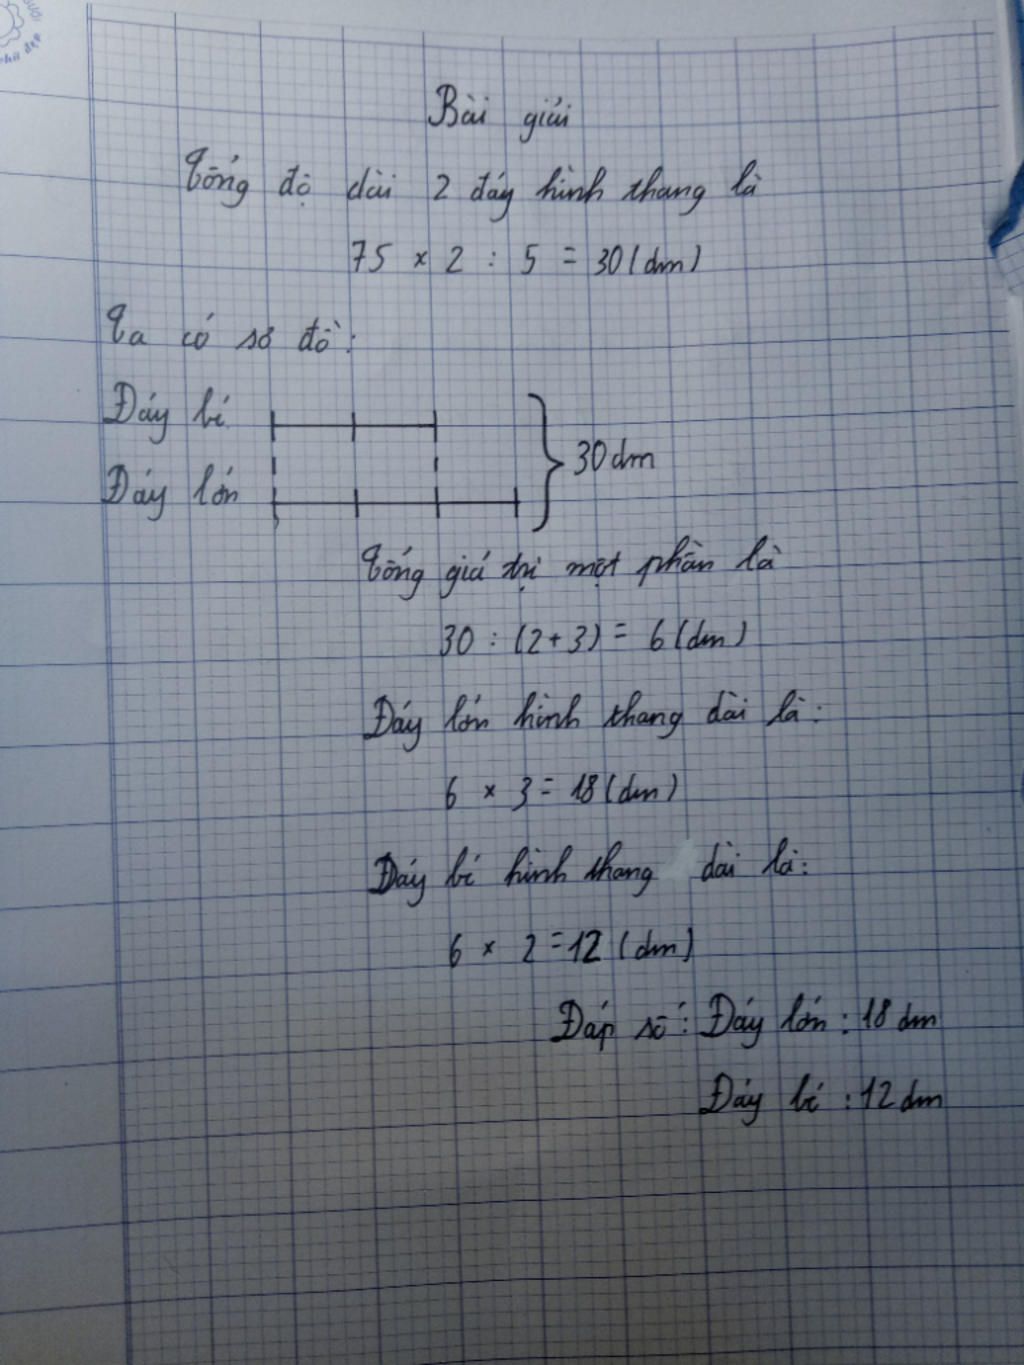 Bài giải
Tổng độ dài 2 đáy hình thang là
75 × 2 : 5 = 30 (dm)
Ta có sơ đồ:
Đáy bé
30 dm
Đáy lớn
Tổng giá trị một phần là
30 : (2 + 3) = 6 (dm)
Đáy lớn hình thang dài là:
6 × 3 = 18 (dm)
Đáy bé hình thang dài là:
6 × 2 = 12 (dm)
Đáp số: Đáy lớn: 18 dm
Đáy bé : 12 dm